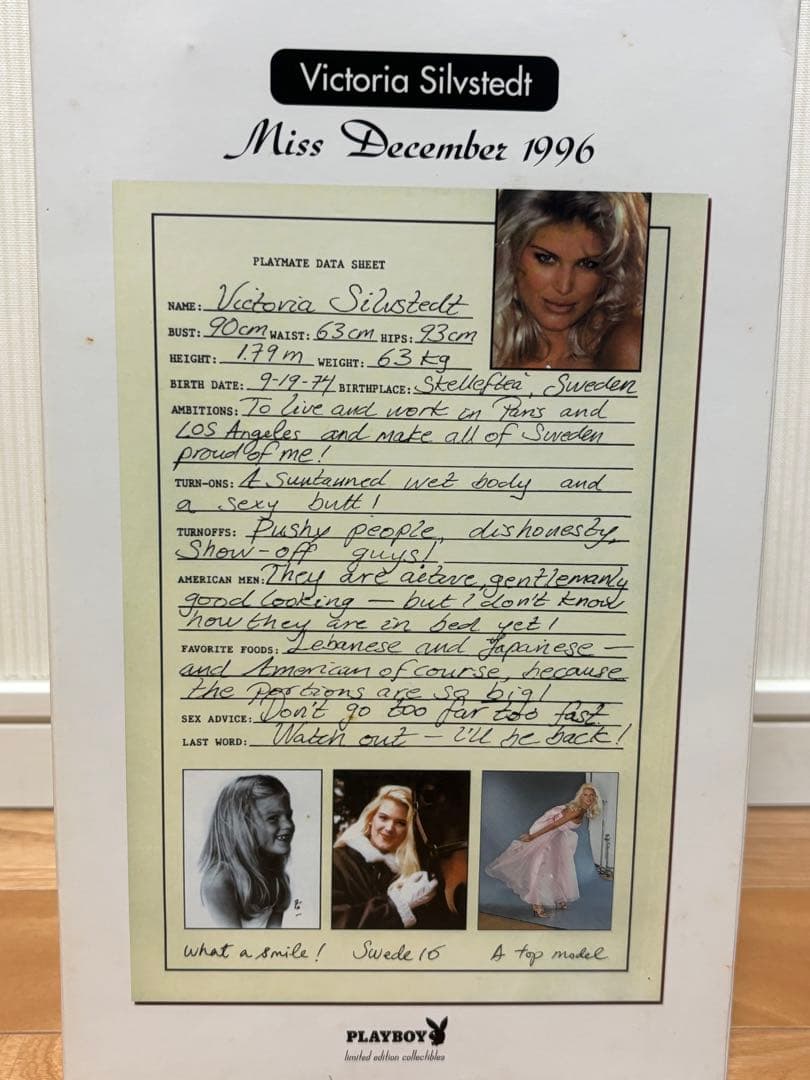 Victoria Silvstedt
Miss December 1996
PLAYMATE DATA SHEET
NAME: Victoria Silvstedt
BUST: 90cm WAIST: 63cm HIPS: 93cm
HEIGHT: 1.79 m WEIGHT: 63 kg
BIRTH DATE: 9-19-74 BIRTHPLACE: Skellefteå, Sweden
AMBITIONS: To live and work in Paris and
LOS Angeles and make all of Sweden
proud of me!
TURN-ONS: A suntanned wet body and
a sexy butt!
TURNOFFS: Pushy people, dishonesty,
Show-off guys!
AMERICAN MEN: They are active, gentlemanly
good looking — but I don't know
how they are in bed yet!
FAVORITE FOODS: Lebanese and Japanese —
and American of course, because
the portions are so big!
SEX ADVICE: Don't go too far too fast.
LAST WORD: Watch out — I'll be back!
What a smile! Swede 16 A top model
PLAYBOY
limited edition collectibles